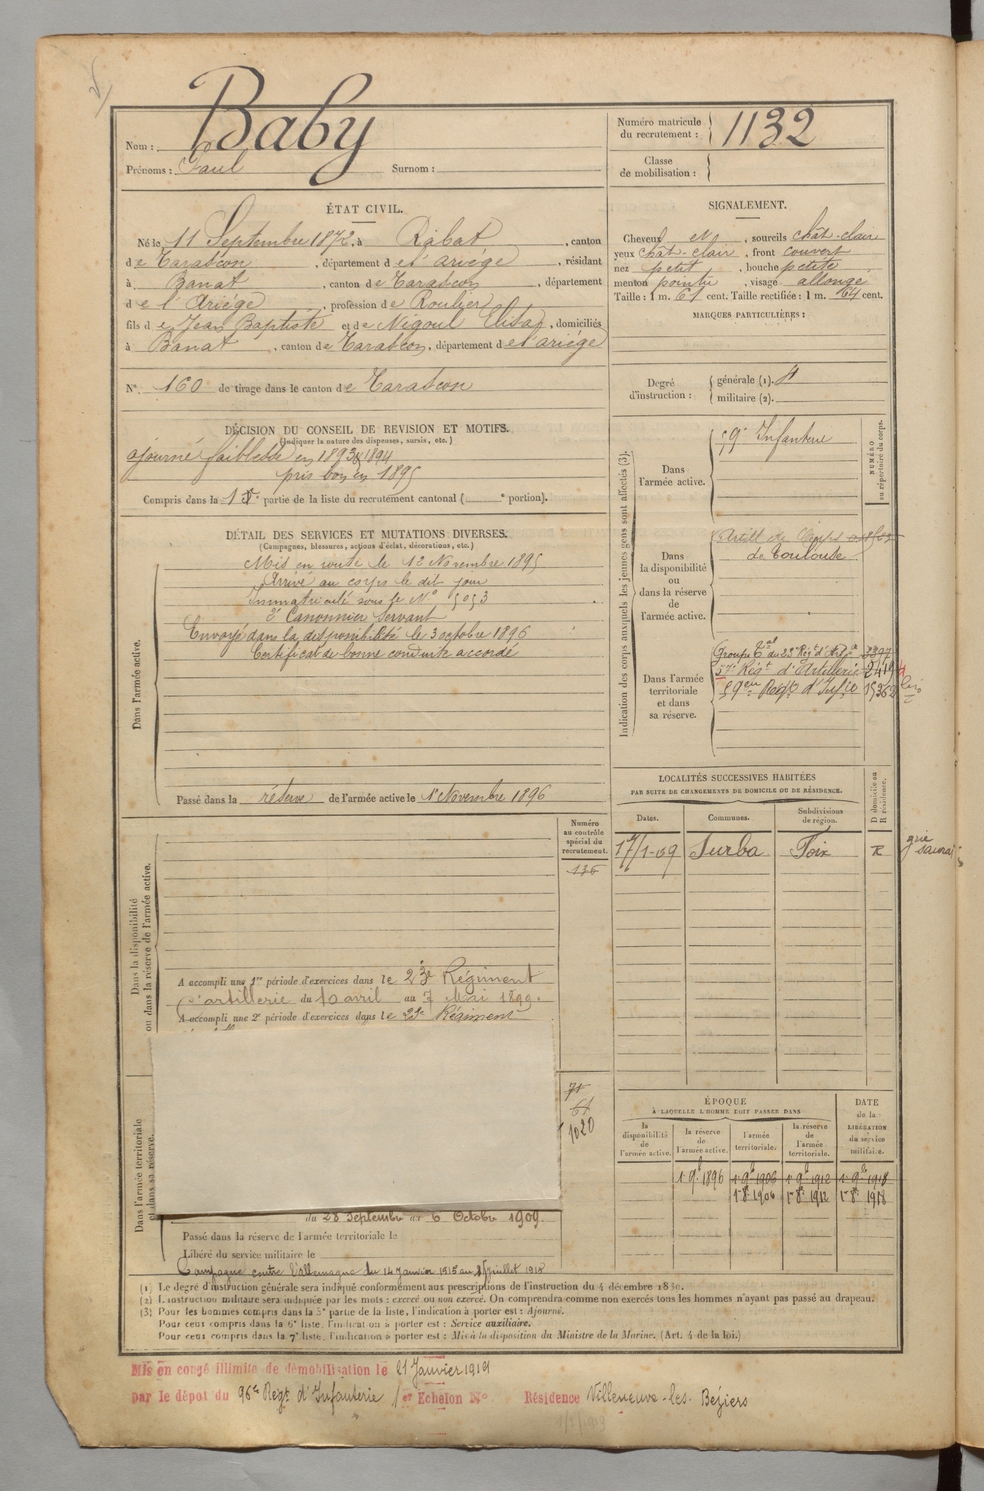 Nom : Baby
Prénoms : Paul Surnom :
Numéro matricule du recrutement : 1132
Classe de mobilisation :
ÉTAT CIVIL.
Né le 11 Septembre 1872, à Rabat, canton
de Tarascon, département de l'ariège, résidant
à Banat, canton de Tarascon, département
de l'Ariége, profession de Roulier
fils de Jean Baptiste et de Nigoul Elisa, domiciliés
à Banat, canton de Tarascon, département de l'ariège
N° 160 de tirage dans le canton de Tarascon
SIGNALEMENT.
Cheveux sourcils chât-clair
yeux chât-clair, front couvert
nez petit, bouche petite
menton pointu, visage allongé
Taille : 1 m. 61 cent. Taille rectifiée : 1 m. 64 cent.
MARQUES PARTICULIÈRES :
Degré d'instruction : générale (1).
militaire (2).
DÉCISION DU CONSEIL DE REVISION ET MOTIFS.
(Indiquer la nature des dispenses, sursis, etc.)
ajourné faiblesse en 1893 & 1894
pris bon en 1895
Compris dans la 1re partie de la liste du recrutement cantonal ( e portion).
DÉTAIL DES SERVICES ET MUTATIONS DIVERSES.
(Campagnes, blessures, actions d'éclat, décorations, etc.)
Dans l'armée active.
Mis en route le 12 Novembre 1895
Arrivé au corps le dit jour
Immatriculé sous le N° 5053
2e Canonnier Servant
Envoyé dans la disponibilité le 3 octobre 1896
Certificat de bonne conduite accordé
Passé dans la réserve de l'armée active le 1er Novembre 1896
Indication des corps auxquels les jeunes gens sont affectés (3).
NUMÉRO au répertoire du corps.
Dans l'armée active.
59e Infanterie
Dans la disponibilité ou dans la réserve de l'armée active.
Artill de Corps
de Toulouse
Dans l'armée territoriale et dans sa réserve.
Groupe du 23e Rég d'Art
57e Régt d'Artillerie 2419
59eme Regt d'Infie 15362
LOCALITÉS SUCCESSIVES HABITÉES
PAR SUITE DE CHANGEMENTS DE DOMICILE OU DE RÉSIDENCE.
Dates. Communes. Subdivisions de région. D domicile ou R résidence.
17/1-09 Surba Foix R
Numéro au contrôle spécial du recrutement.
136
Dans la disponibilité ou dans la réserve de l'armée active.
A accompli une 1re période d'exercices dans le 23e Régiment
d'artillerie du 10 avril au 7 Mai 1899.
A accompli une 2e période d'exercices dans le 23e Régiment
71
61
1020
Dans l'armée territoriale et dans sa réserve.
du 28 Septembre au 6 Octobre 1909.
Passé dans la réserve de l'armée territoriale le
Libéré du service militaire le
Campagne contre l'allemagne du 14 Janvier 1915 au juillet 1918
ÉPOQUE
À LAQUELLE L'HOMME DOIT PASSER DANS
DATE de la LIBÉRATION du service militaire.
la disponibilité de l'armée active. la réserve de l'armée active. l'armée territoriale. la réserve de l'armée territoriale.
1er 9bre 1896 1er 9bre 1906 1er 9bre 1912 1er 9bre 1918
1er 8bre 1906 1er 8bre 1912 1er 8bre 1918
(1) Le degré d'instruction générale sera indiqué conformément aux prescriptions de l'instruction du 4 décembre 1889.
(2) L'instruction militaire sera indiquée par les mots : exercé ou non exercé. On comprendra comme non exercés tous les hommes n'ayant pas passé au drapeau.
(3) Pour les hommes compris dans la 5e partie de la liste, l'indication à porter est : Ajourné.
Pour ceux compris dans la 6e liste, l'indication à porter est : Service auxiliaire.
Pour ceux compris dans la 7e liste, l'indication à porter est : Mis à la disposition du Ministre de la Marine. (Art. 4 de la loi.)
Mis en congé illimité de démobilisation le 21 Janvier 1919
par le dépôt du 96e Regt d'Infanterie 1er Echelon N° Résidence Villeneuve-les-Beziers